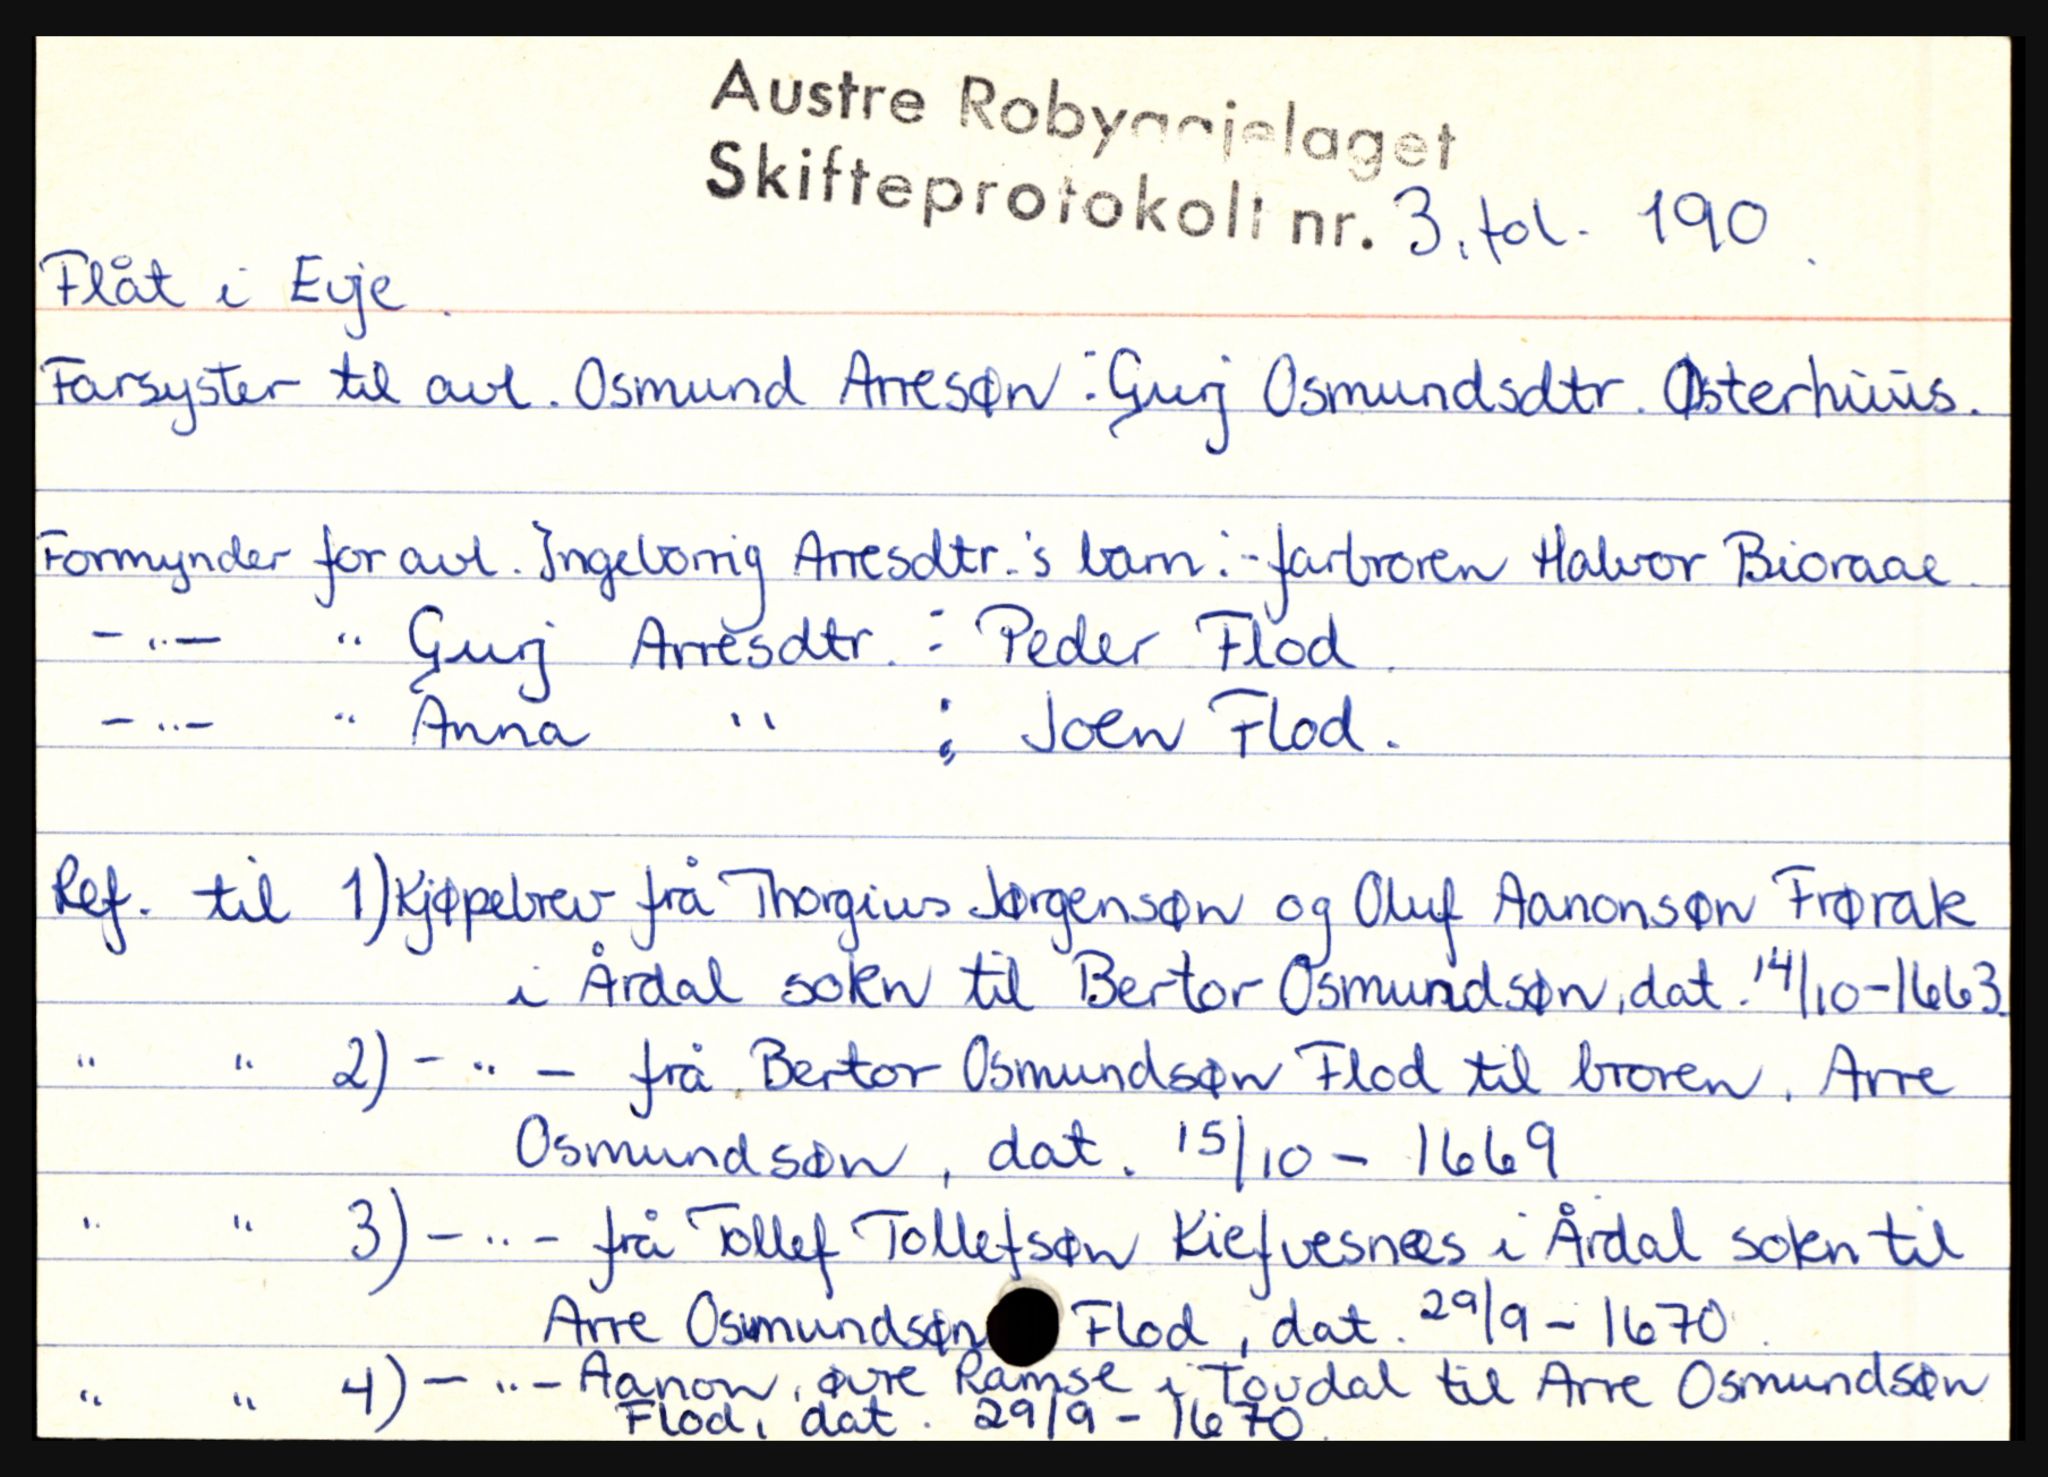 Austre Robyggjelaget
Skifteprotokoll nr. 3, fol. 190.
Flåt i Evje.
Farsyster til avl. Osmund Arresøn : Gurj Osmundsdtr. Østerhuus.
Formynder for avl. Ingeborrig Arresdtr.'s barn : - farbroren Halvor Bioraae.
- " - " Gurj Arresdtr. : Peder Flod.
- " - " Anna " : Joen Flod.
Ref. til 1) Kjøpebrev frå Thorgius Jørgensøn og Oluf Aanonsøn Frørak
i Årdal sokn til Bertor Osmundsøn, dat. 14/10-1663.
" " 2) - " - frå Bertor Osmundsøn Flod til broren, Arre
Osmundsøn, dat. 15/10 - 1669
" " 3) - " - frå Tollef Tollefsøn Kiefvesnæs i Årdal sokn til
Arre Osmundsøn Flod, dat. 29/9 - 1670.
" " 4) - " - Aanon, øvre Ramse i Tovdal til Arre Osmundsøn
Flod, dat. 29/9 - 1670.